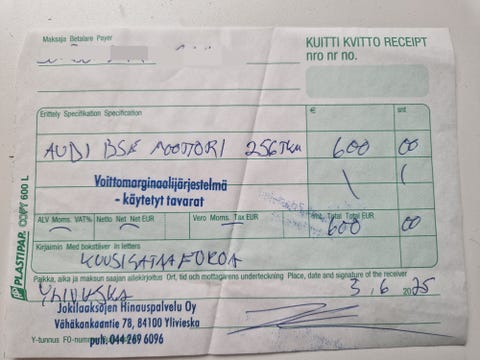 Maksaja Betalare Payer
KUITTI KVITTO RECEIPT
nro nr no.
Erittely Specifikation Specification € snt
AUDI BSE MOOTTORI 256TKM 600 00
Voittomarginaalijärjestelmä
- käytetyt tavarat
ALV Moms. VAT% Netto Net Net EUR Vero Moms. Tax EUR Total Total EUR
600 00
Kirjaimin Med bokstäver In letters
KUUSISATAA EUROA
Paikka, aika ja maksun saajan allekirjoitus Ort, tid och mottagarens underteckning Place, date and signature of the receiver
YLIVIESKA 3.6 2025
Jokilaaksojen Hinauspalvelu Oy
Vähäkankaantie 78, 84100 Ylivieska
puh. 044 269 6096
Y-tunnus
PLASTIPAP. COPY 600 L